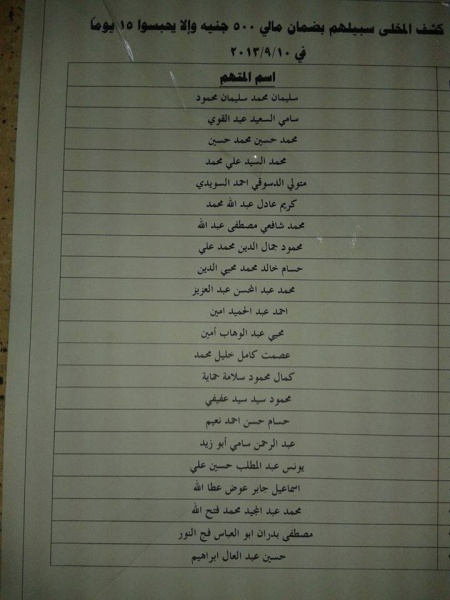 كشف المخلى سبيلهم بضمان مالي ٥٠٠ جنيه وإلا يحبسوا ١٥ يوماً
في ٢٠١٣/٩/١٠
اسم المتهم
سليمان محمد سليمان محمود
سامي السعيد عبد القوي
محمد حسين محمد حسين
محمد السيد علي محمد
متولي الدسوقي احمد السويدي
كريم عادل عبد الله محمد
محمد شافعي مصطفى عبد الله
محمود جمال الدين محمد علي
حسام خالد محمد محيي الدين
محمد عبد المحسن عبد العزيز
احمد عبد الحميد امين
محيي عبد الوهاب أمين
عصمت كامل خليل محمد
كمال محمود سلامة حماية
محمود سيد سيد عفيفي
حسام حسن احمد نعيم
عبد الرحمن سامي أبو زيد
يونس عبد المطلب حسين علي
اسماعيل جابر عوض عطا الله
محمد عبد المجيد محمد فتح الله
مصطفى بدران ابو العباس فج النور
حسين عبد العال ابراهيم